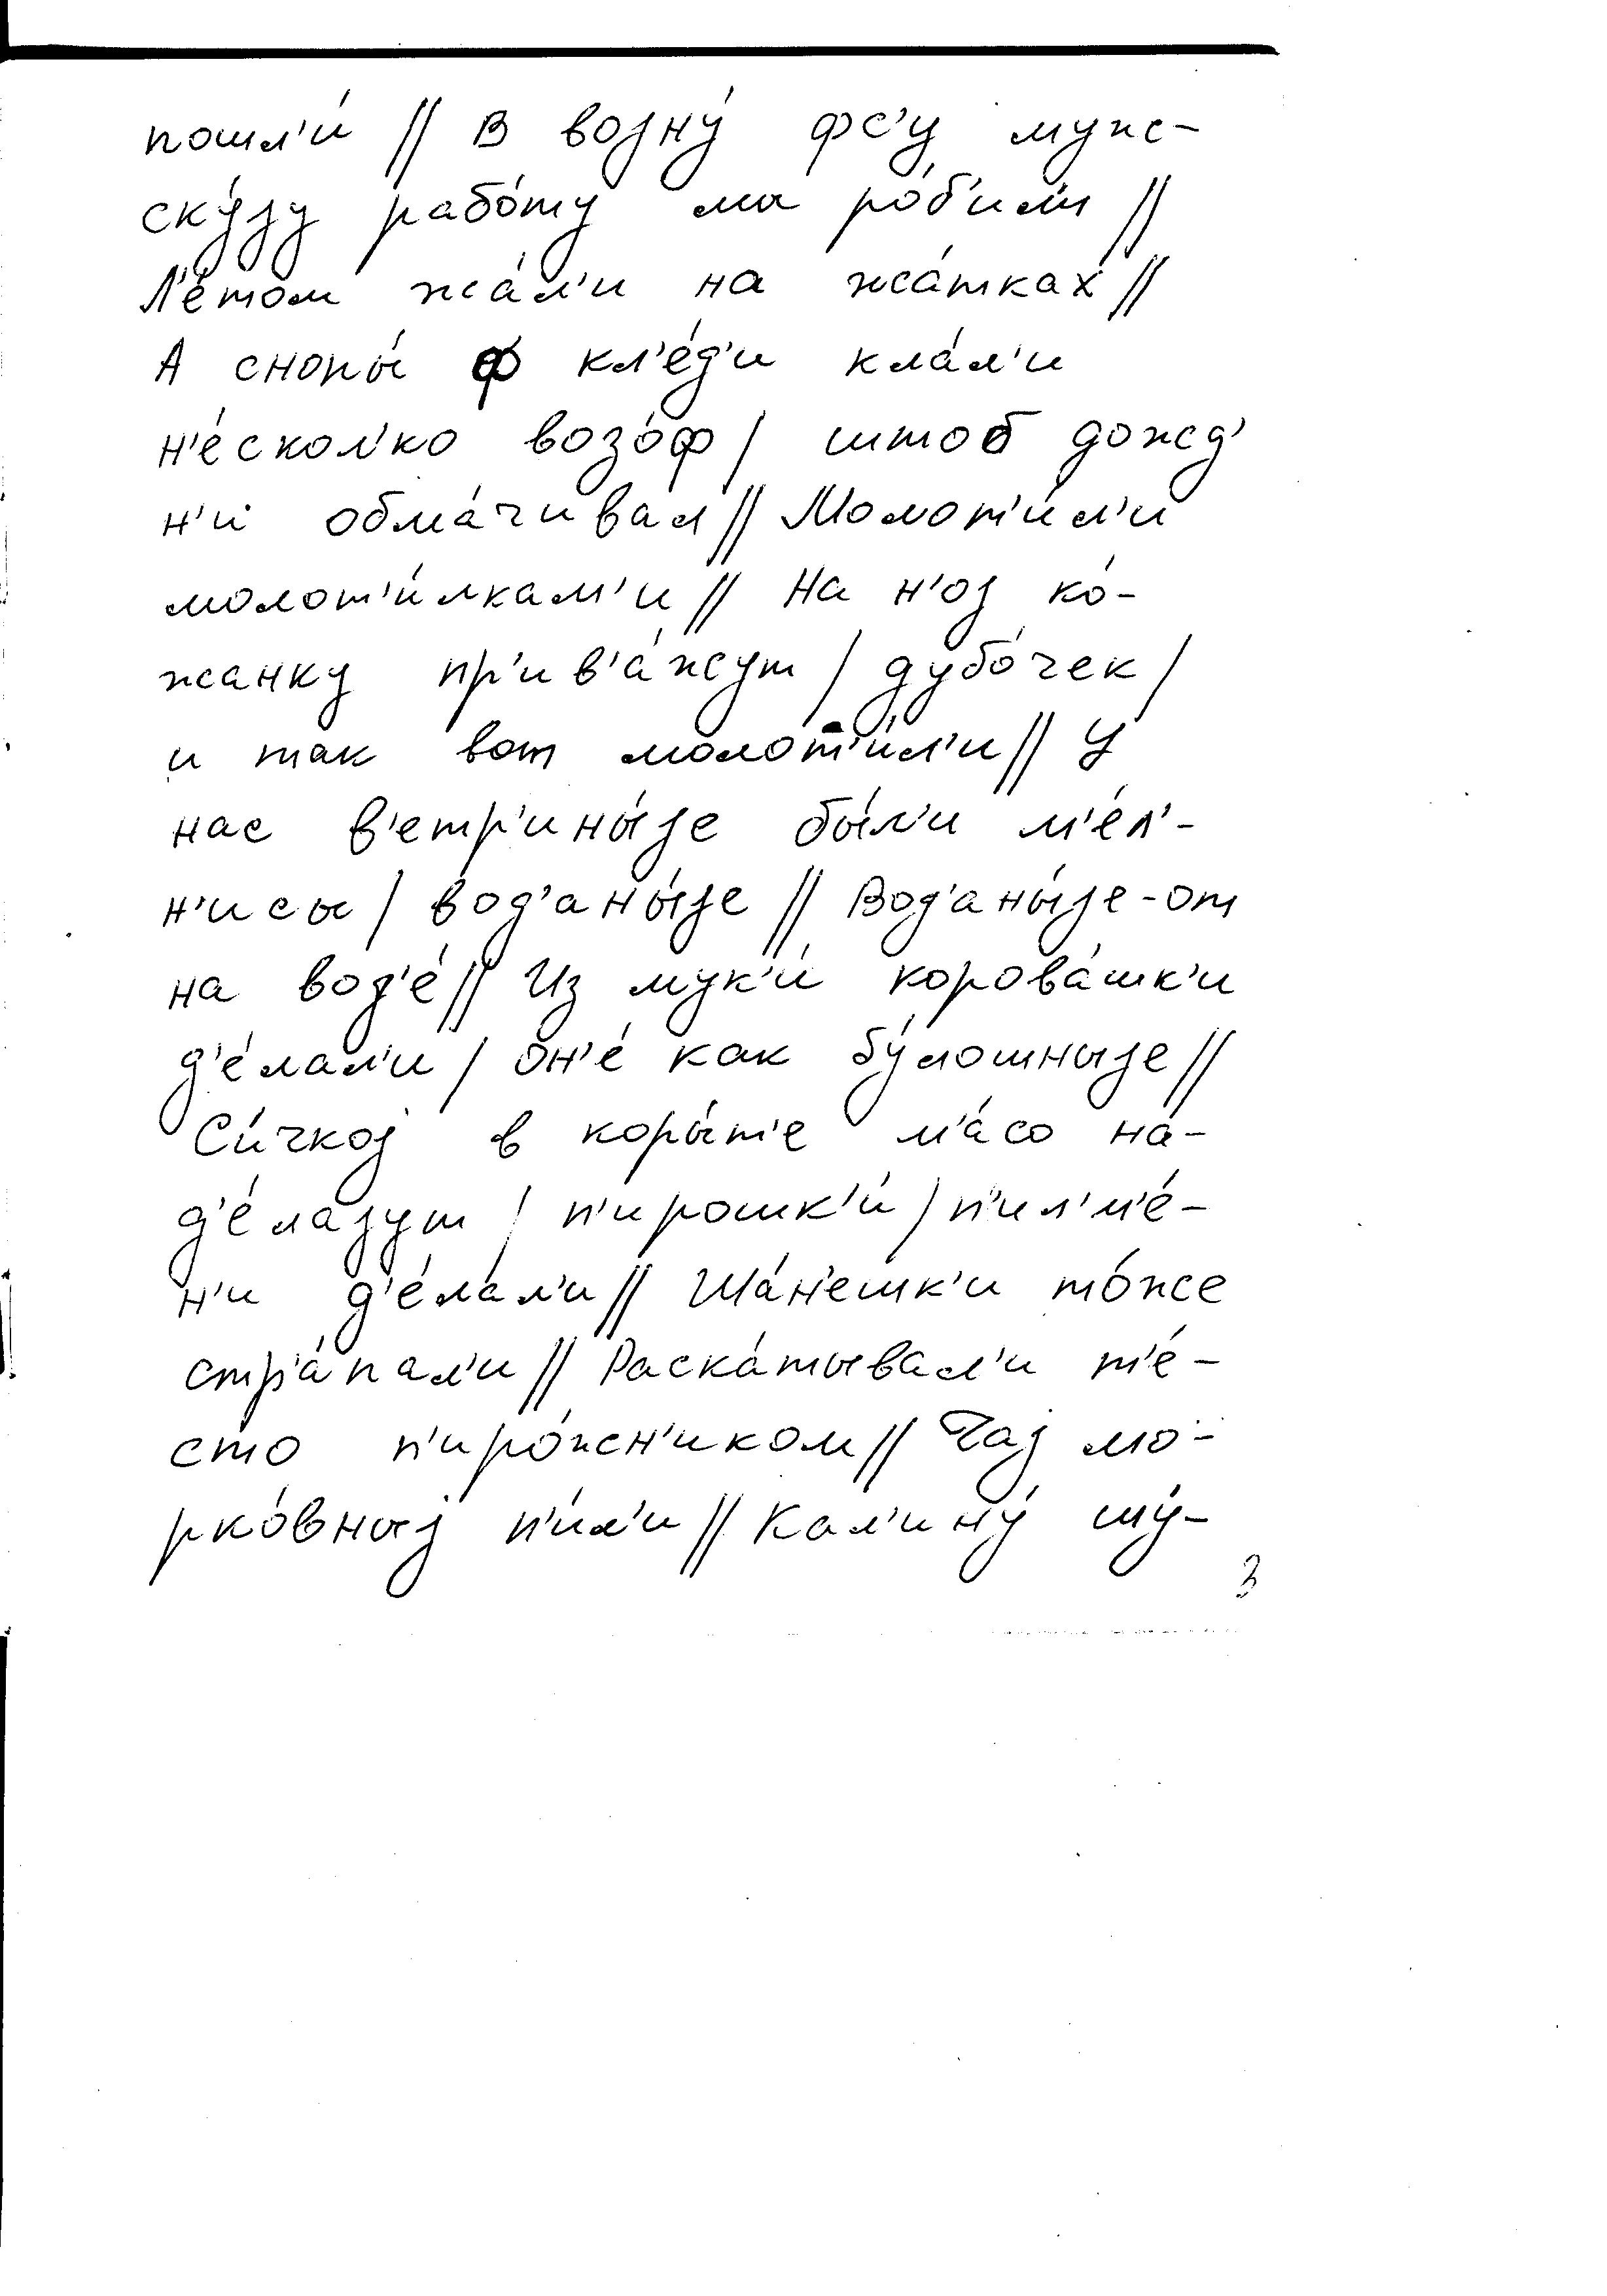 пошл'и́ // В војну́ фс'у му́жс-
ску́ју рабо́ту мы ро́б'ил'и //
Л'е́том жа́л'и на жа́тках //
А снопы́ ф кл'е́д'и кла́л'и
н'е́скол'ко возо́ф / штоб дожд'
н'и обма́чивал // Молот'и́л'и
молот'и́лкам'и // На н'ој ко́-
жанку пр'ив'а́жут / дубо́чек /
и так вот молот'и́л'и // У
нас в'етр'ины́је бы́л'и м'е́л'-
н'исы / вод'аны́је // Вод'аны́је-от
на вод'е́ // Из мук'и́ корова́шк'и
д'е́лал'и / он'е́ как бу́лошныје //
Си́чкој в коры́т'е м'а́со на-
д'е́лајут / п'ирошк'и́ / п'ил'м'е́-
н'и д'е́лал'и // Ша́н'ешк'и то́же
стр'а́пал'и // Раска́тывал'и т'е́-
сто п'иро́жн'иком // Чај мо-
рко́вныј п'и́л'и // Кал'ину́ шу́-
3